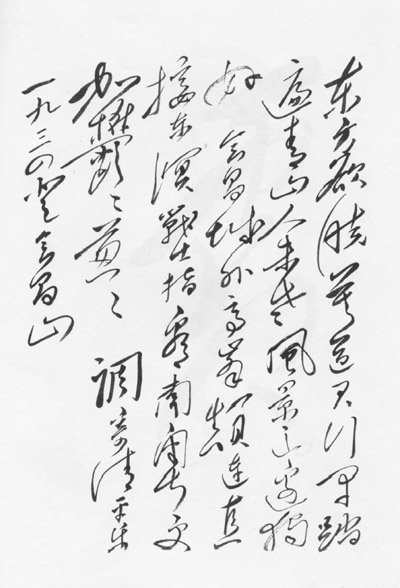 东方欲晓莫道君行早踏
遍青山人未老風景这边独
好 会昌城外高峯顛连直
接东溟戰士指看南粤更
加欝〻葱〻 調寄清平乐
一九三四登会昌山